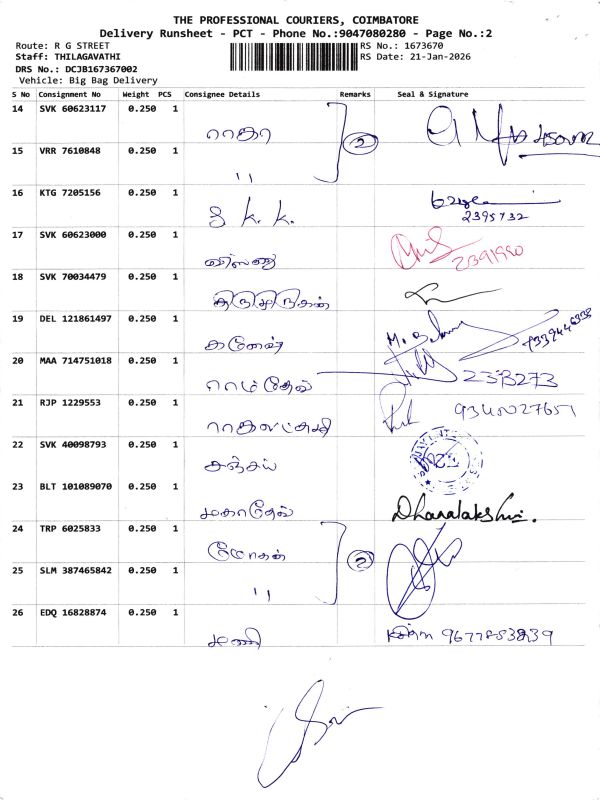 THE PROFESSIONAL COURIERS, COIMBATORE
Delivery Runsheet - PCT - Phone No.:9047080280 - Page No.:2
Route: R G STREET
Staff: THILAGAVATHI
DRS No.: DCJB167367002
Vehicle: Big Bag Delivery
RS No.: 1673670
RS Date: 21-Jan-2026
S No Consignment No Weight PCS Consignee Details Remarks Seal & Signature
14 SVK 60623117 0.250 1 ராகா 2
15 VRR 7610848 0.250 1 ''
16 KTG 7205156 0.250 1 S K. K. 2395732
17 SVK 60623000 0.250 1 2391990
18 SVK 70034479 0.250 1 திருமுருகன்
19 DEL 121861497 0.250 1 கணேஷ்
20 MAA 714751018 0.250 1 ராம்தேவ்
21 RJP 1229553 0.250 1 9345027651
22 SVK 40098793 0.250 1 சஞ்சய்
23 BLT 101089070 0.250 1 மகாதேவ் Dhanalakshmi.
24 TRP 6025833 0.250 1 மோகன் 2
25 SLM 387465842 0.250 1 ''
26 EDQ 16828874 0.250 1 மணி